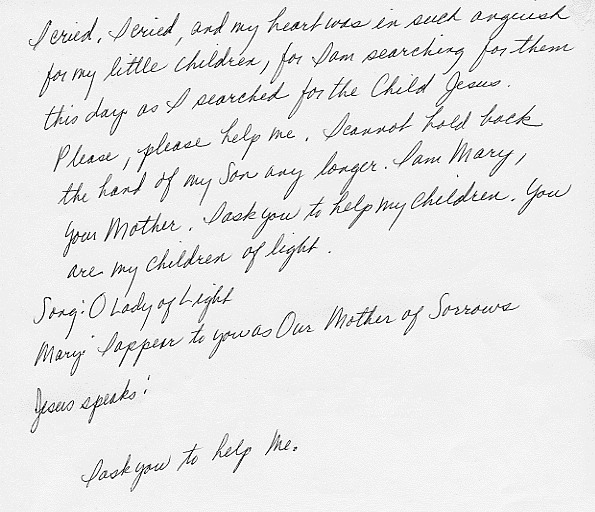 I cried, I cried, and my heart was in such anguish
for my little children, for I am searching for them
this day as I searched for the Child Jesus.
Please, please help me. I cannot hold back
the hand of my Son any longer. I am Mary,
your Mother. I ask you to help my children. You
are my children of light.
Song: O Lady of Light
Mary: I appear to you as Our Mother of Sorrows
Jesus speaks:
I ask you to help Me.